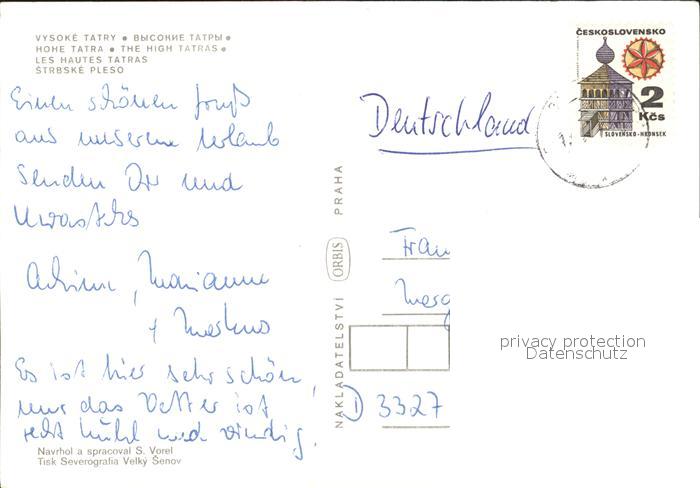 VYSOKÉ TATRY • ВЫСОКИЕ ТАТРЫ •
HOHE TATRA • THE HIGH TATRAS •
LES HAUTES TATRAS
ŠTRBSKÉ PLESO
Einen schönen Gruß
aus unserem Urlaub
senden Dir und
Achim, Marianne
+ Markus
Es ist hier sehr schön,
nur das Wetter ist
recht kühl und windig.
Navrhol a spracoval S. Vorel
Tisk Severografia Velký Šenov
NAKLADATELSTVÍ ORBIS PRAHA
ČESKOSLOVENSKO
2
Kčs
SLOVENSKO-HRONSEK
Deutschland
privacy protection
Datenschutz
D 3327